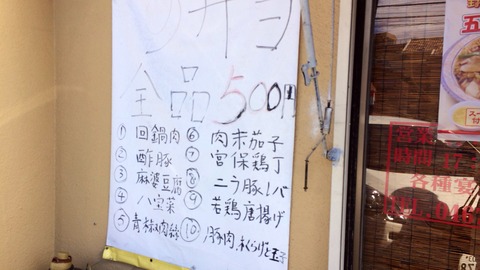 弁当
全品500円
① 回鍋肉
② 酢豚
③ 麻婆豆腐
④ 八宝菜
⑤ 青椒肉絲
⑥ 肉末茄子
⑦ 宮保鶏丁
⑧ ニラ豚レバ
⑨ 若鶏唐揚げ
⑩ 豚肉、木くらげと玉子
五
営業
時間 17
各種宴
TEL 046